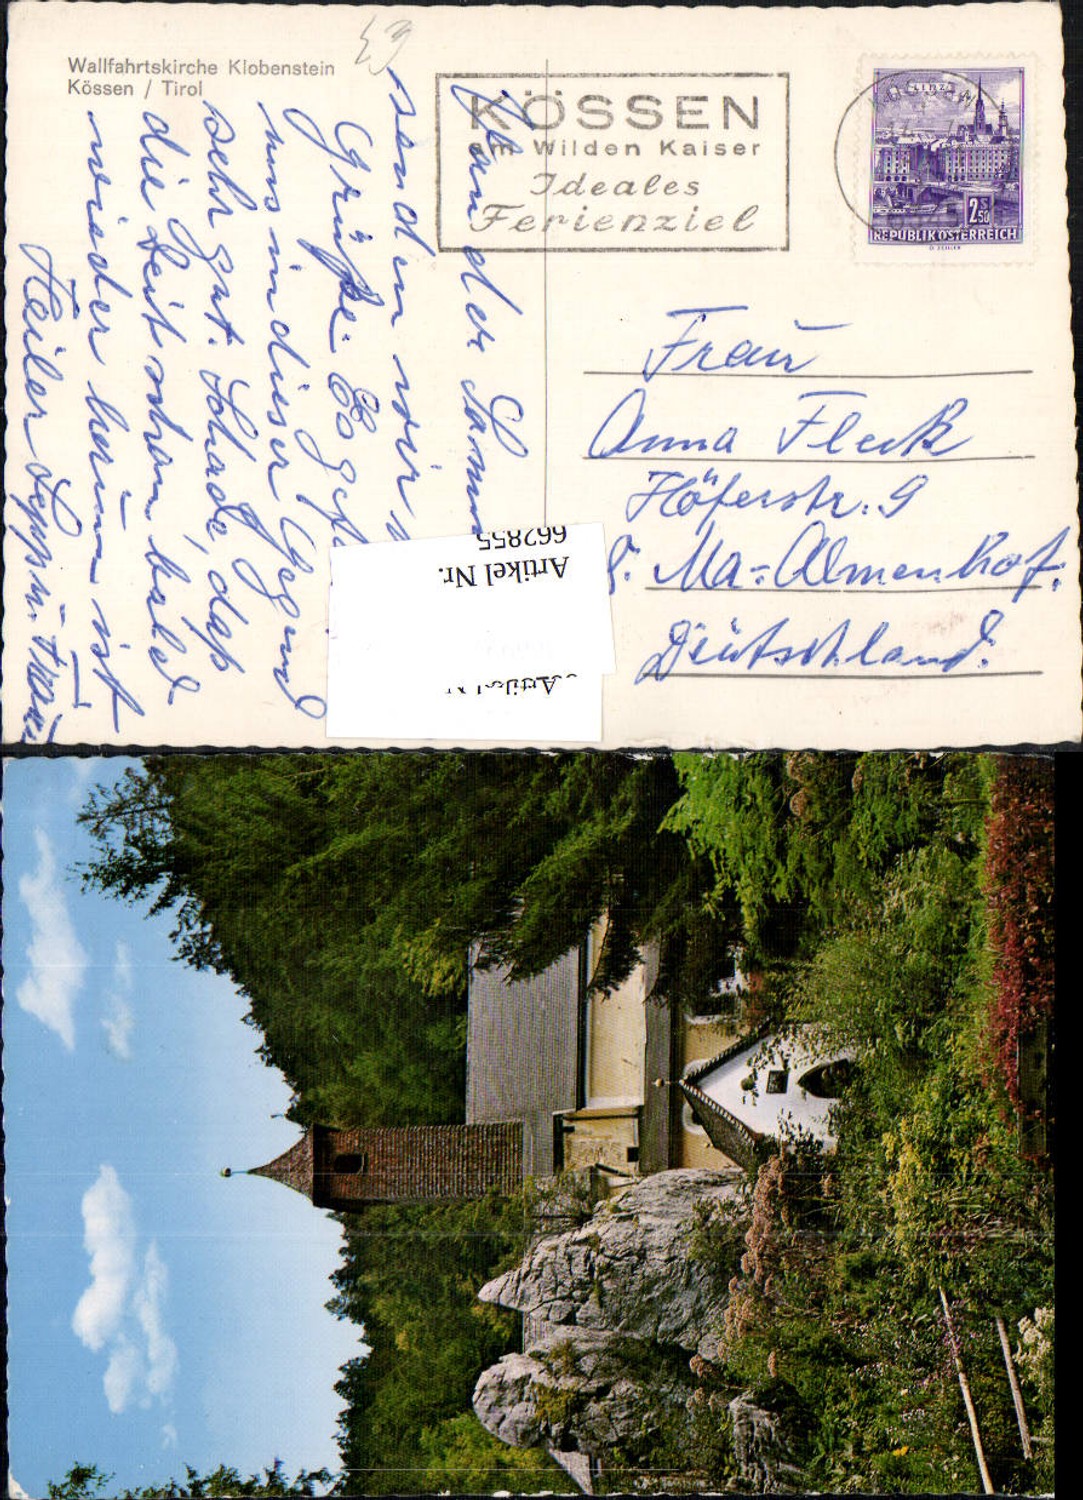 Wallfahrtskirche Klobenstein
Kössen / Tirol
KÖSSEN
am Wilden Kaiser
Ideales
Ferienziel
LINZ
2 S 50
REPUBLIK ÖSTERREICH
Von der
senden wir
Grüße. Es
uns in dieser Gegend
sehr gut. Schade, daß
die Zeit schon bald
wieder herum ist
Frau
Anna Fleck
Höferstr. 9
Ma-Almenhof.
Deutschland.
Artikel Nr.
662855